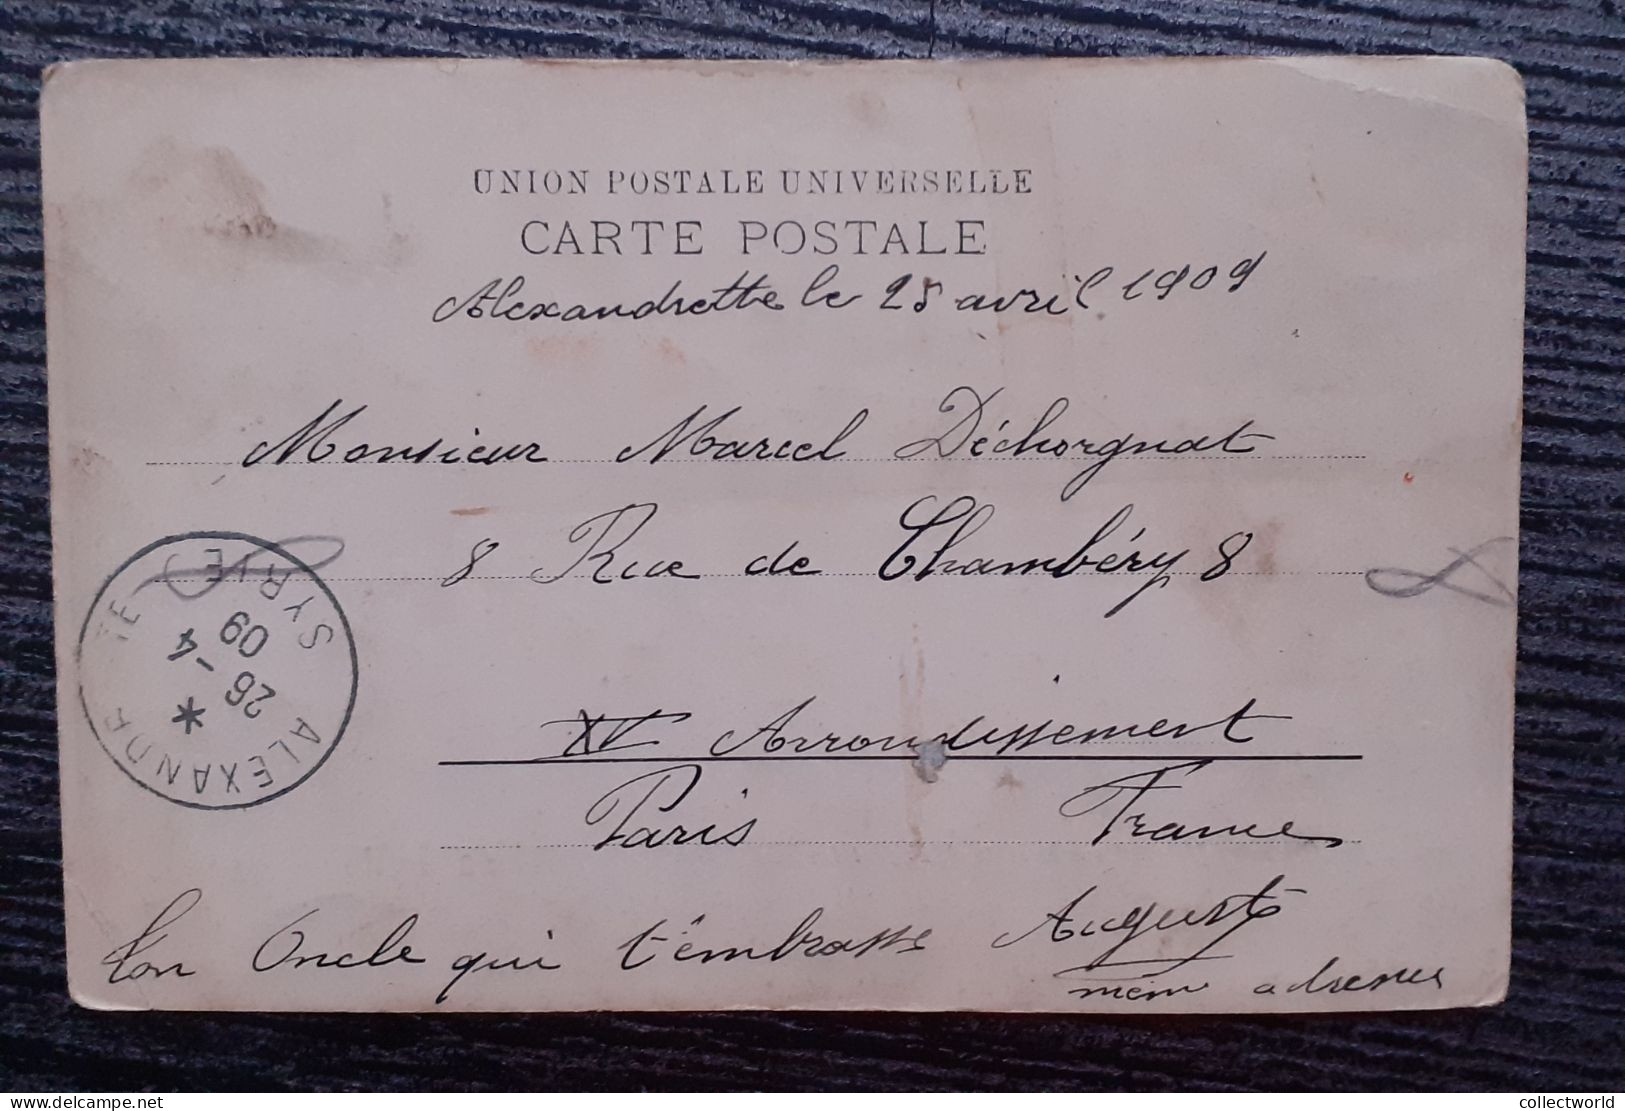 UNION POSTALE UNIVERSELLE
CARTE POSTALE
Alexandrette le 25 avril 1909
Monsieur Marcel Déchorgnat
8 Rue de Chambéry 8
XV Arrondissement
Paris France
Ton Oncle qui t'embrasse Auguste
même adresse
ALEXANDRETTE (SYRIE)
26 -4
09
collectworld